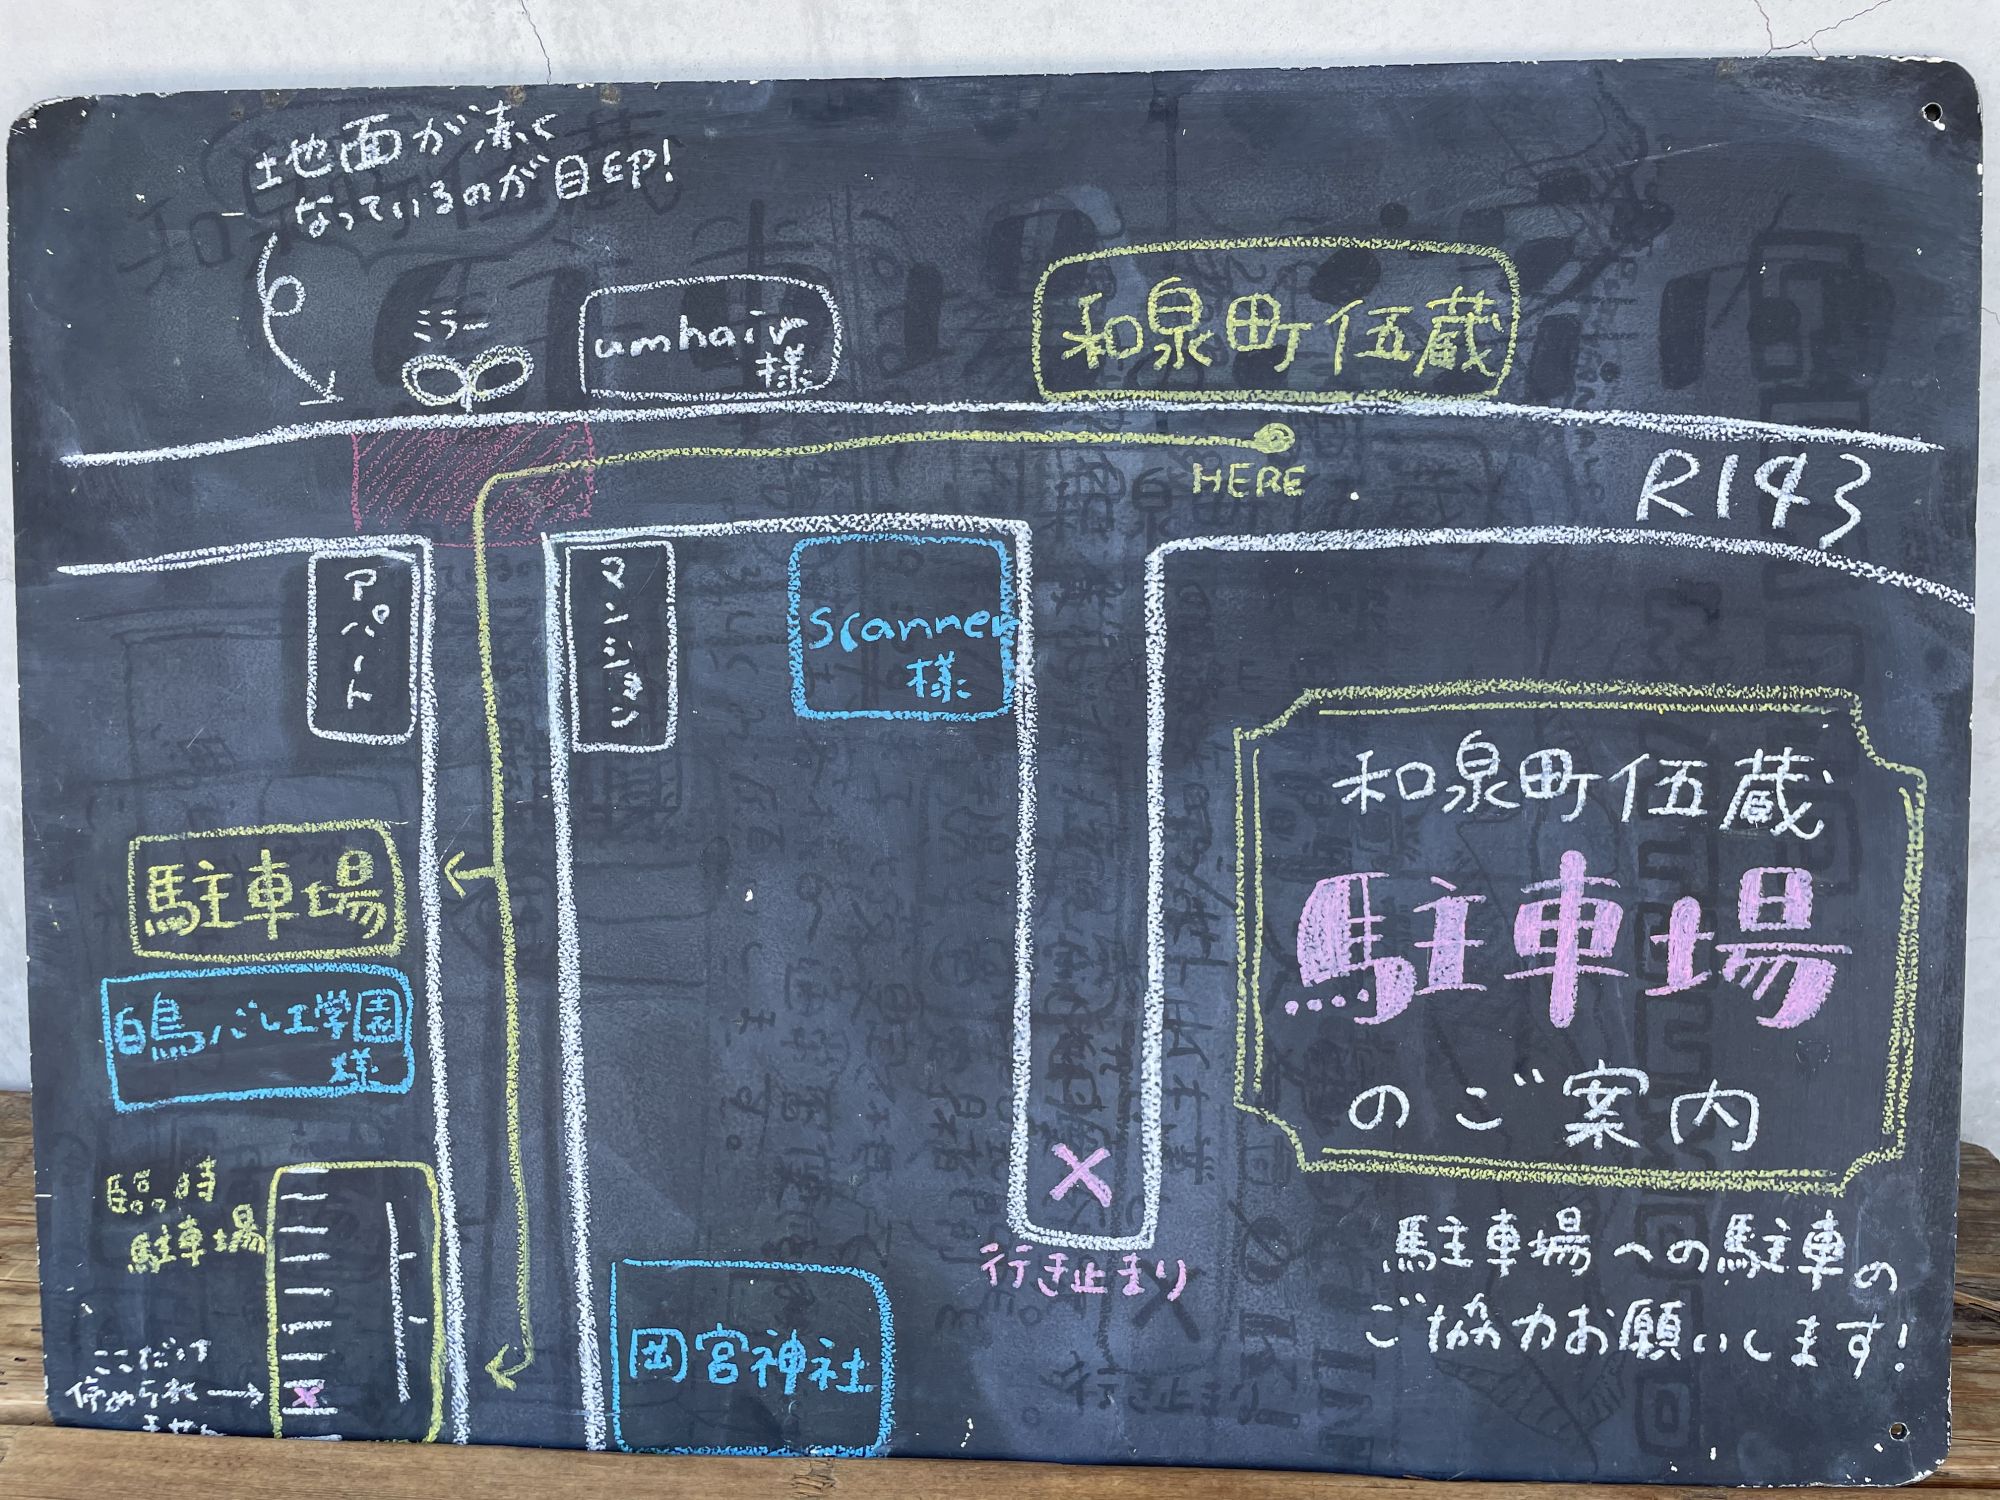 地面が赤く
なっているのが目印!
ミラー
umhair
様
和泉町伍蔵
HERE
R143
アパート
マンション
Scanner
様
駐車場
白鳥バレエ学園
様
臨時
駐車場
ここだけ
停められ
ません
岡宮神社
行き止まり
和泉町伍蔵
駐車場
のご案内
駐車場への駐車の
ご協力お願いします!